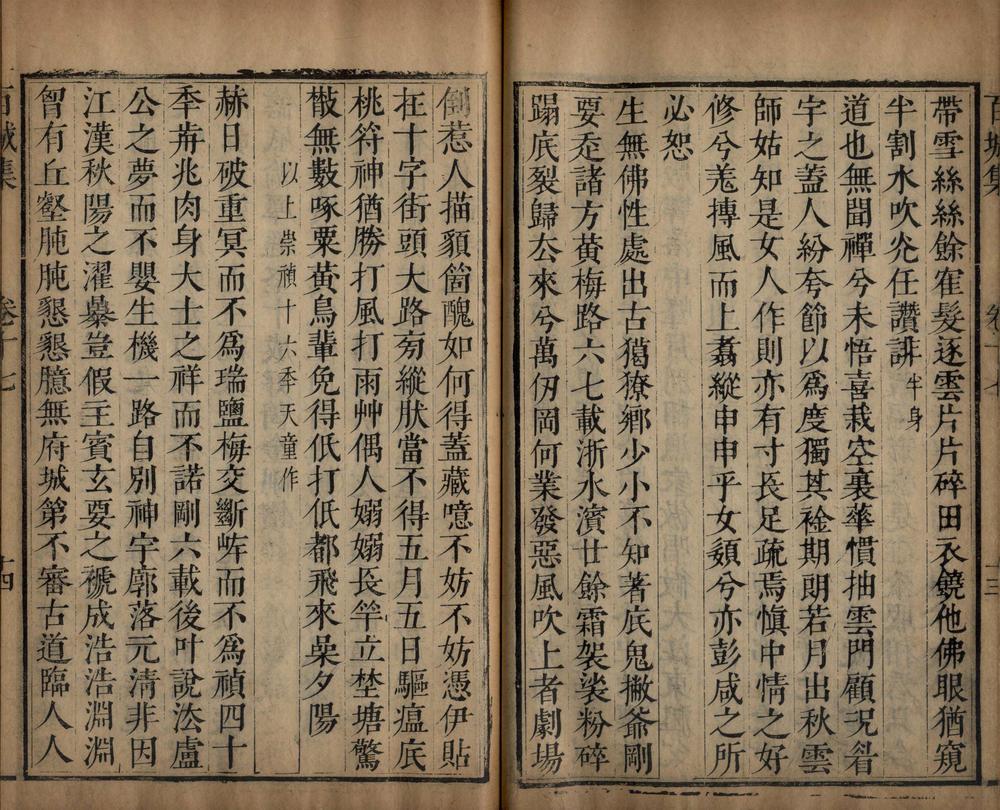 百城集 卷十七 十三
帶雪絲絲餘寉髮逐雲片片碎田衣鏡他佛眼猶窺
半割水吹灮任讚誹半身
道也無聞禪兮未悟喜栽空裏華慣抽雲門顧況㸔
宇之蓋人紛夸節以為度獨其裣期朗若月出秋雲
師姑知是女人作則亦有寸長足疏焉慎中情之好
修兮羗摶風而上翥縱申申乎女嬃兮亦彭咸之所
必恕
生無佛性處出古獦獠鄉少小不知著底鬼撇爺剛
要歪諸方黃梅路六七載浙水濱廿餘霜袈裟粉碎
蹋底裂歸厺來兮萬仞岡何業發惡風吹上者劇場
倒惹人描貌箇醜如何得蓋藏噫不妨不妨憑伊貼
在十字街頭大路㫄縱肰當不得五月五日驅瘟底
桃符神猶勝打風打雨艸偶人嫋嫋長竿立埜塘驚
㪚無數啄粟黃鳥輩免得低打低都飛來喿夕陽
以上崇禎十六秊天童作
赫日破重冥而不爲瑞鹽梅交斷㡿而不爲禎四十
秊㫷兆肉身大士之祥而不諾剛六載後叶說法盧
公之夢而不嬰生機一路自別神宇廓落元清非因
江漢秋陽之濯暴豈假主賓玄要之褫成浩浩淵淵
曾有丘壑肫肫懇懇臆無府城第不審古道臨人人
百城集 卷十七 十四